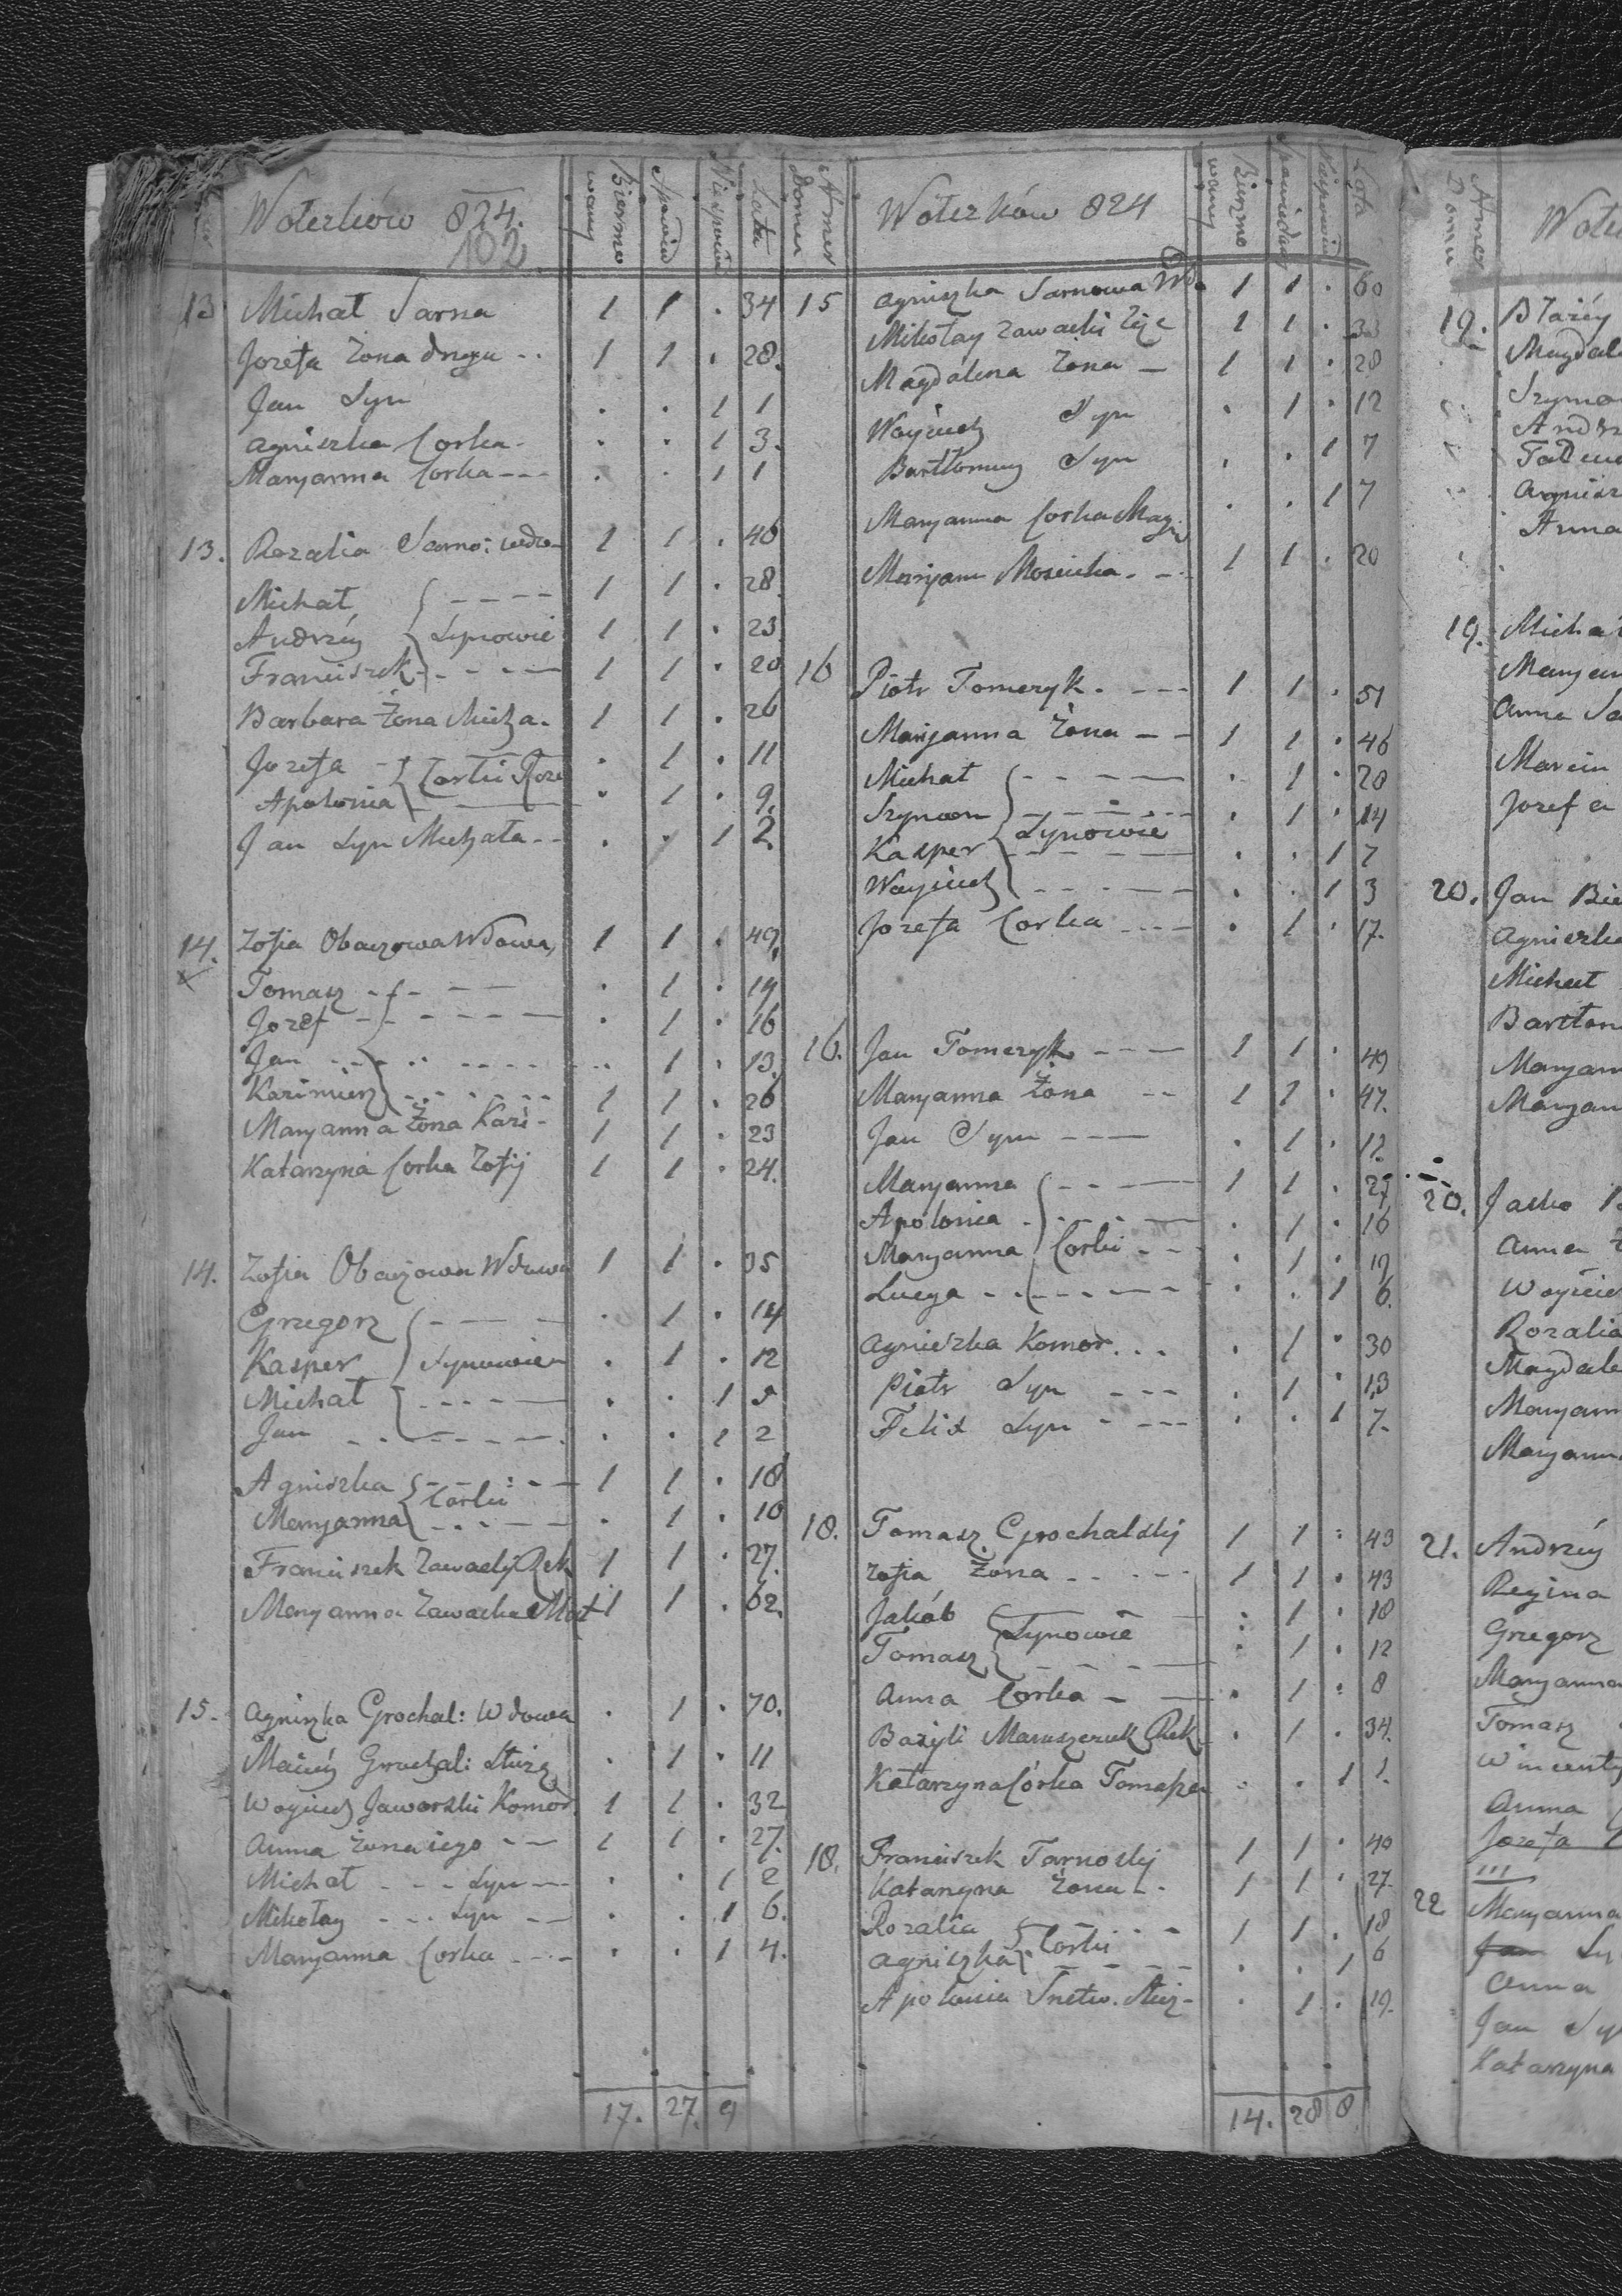 Woterków 824.
102
Bierzmo
wany
Spowied
Niespowia
Lata
13 Michał Sarna 1 1 . 34
Jozefa Żona druga .. 1 1 . 28.
Jan Syn . . 1 1
Agniszka Corka . . . 1 3.
Maryanna Corka --- . . 1 1
13. Rozalia Sarno: wdo- 1 1 . 46
Michał ---- 1 1 . 28.
Andrzéy Synowie 1 1 . 23
Franciszek ---- 1 1 . 20
Barbara Żona Micha. 1 1 . 26
Jozefa - Corki Roza . 1 . 11
Apolonia . 1 . 9.
Jan Syn Michała -- . . 1 2
14. Zofia Obaczowa Wdowa, 1 1 . 49.
Tomasz ---- . 1 . 19
Jozef ----- . 1 . 16
Jan .. .... . 1 . 13.
Kazimierz ..... 1 1 . 26
Maryanna Żona Kazi- 1 1 . 23
Katarzyna Corka Zofij 1 1 . 24.
14. Zofia Obaczowa Wdowa 1 1 . 35
Grzegorz --- . 1 . 14
Kasper Synowie . 1 . 12
Michał ---- . . 1 5
Jan ------ . . 1 2
Agniszka ---- 1 1 . 18
Corki
Maryanna ---- . 1 . 10
Franciszek Zawacky Rek 1 1 . 27.
Maryanna Zawacka Mat 1 1 . 62.
15. Agniszka Grochal: Wdowa . 1 . 70.
Maciéy Grochal: Służą . 1 . 11
Woyciech Jaworski Komor. 1 1 . 32
Anna Żona iego -- 1 1 . 27.
Michał --- Syn -- . . 1 2
Mikołay --- Syn -- . . 1 6.
Maryanna Corka --- . . 1 4.
17. 27. 9
Numer
Domu
Woterków 824
Bierzmo
wany
Spowiedany
Niespowia
Lata
15 Agniszka Sarnowa Wdo. 1 1 . 60
Mikołay Zawacki Zięc 1 1 . 33
Magdalena Żona - 1 1 . 28
Woyciech Syn . 1 . 12
Bartłomiey Syn . . 1 7
Maryanna Corka Mag: . . 1 7
Maryann Mosicka. -- 1 1 . 20
16 Piotr Tomczyk. --- 1 1 . 51
Maryanna Żona -- 1 1 . 46
Michał ---- . 1 . 20
Szymon ---- . 1 . 14
Synowie
Kasper ---- . . 1 7
Woyciech ---- . . 1 3
Jozefa Corka ---- . 1 . 17.
16. Jan Tomczyk --- 1 1 . 49
Maryanna Żona -- 1 1 . 47.
Jan Syn --- . 1 . 12.
Maryanna --- 1 1 . 27
Apolonia --- . 1 . 16
Maryanna Corki -- . 1 . 19
Lucya ------ . . 1 6.
Agnieszka Komor... . 1 . 30
Piotr Syn --- . 1 . 13
Felix Syn ---- . . 1 7.
18. Tomasz Grochalskij 1 1 . 43
Zofia Żona ---- 1 1 . 43
Jakób . 1 . 18
Synowie
Tomasz ---- . 1 . 12
Anna Corka -- . 1 . 8
Bazyli Maruszczuk Rek . 1 . 34.
Katarzyna Córka Tomasza . . 1 1.
18. Franciszek Tarnoskij 1 1 . 40
Katarzyna Żona -. 1 1 . 27.
Rozalia --- 1 1 . 18
Corki
Agniszka ---- . . 1 6
Apolonia Służ- . 1 . 19.
14. 28 8
Numer
Domu
19. Błażéy
Magdal
Szymo
Andrz
Agniesz
Anna
19. Micha
Maryan
Anna
Marcin
Jozef a
20. Jan Bie
Agnieszka
Michał
Bartłom
Maryan
Maryan
20. Jasko
Anna
Woycie
Rozalia
Magdale
Maryann
Maryann
21. Andrzéy
Regina
Grzegorz
Maryanna
Tomasz
Wincenty
Anna
Jozefa
22 Maryanna
Jan Sy
Anna
Jan Sy
Katarzyna